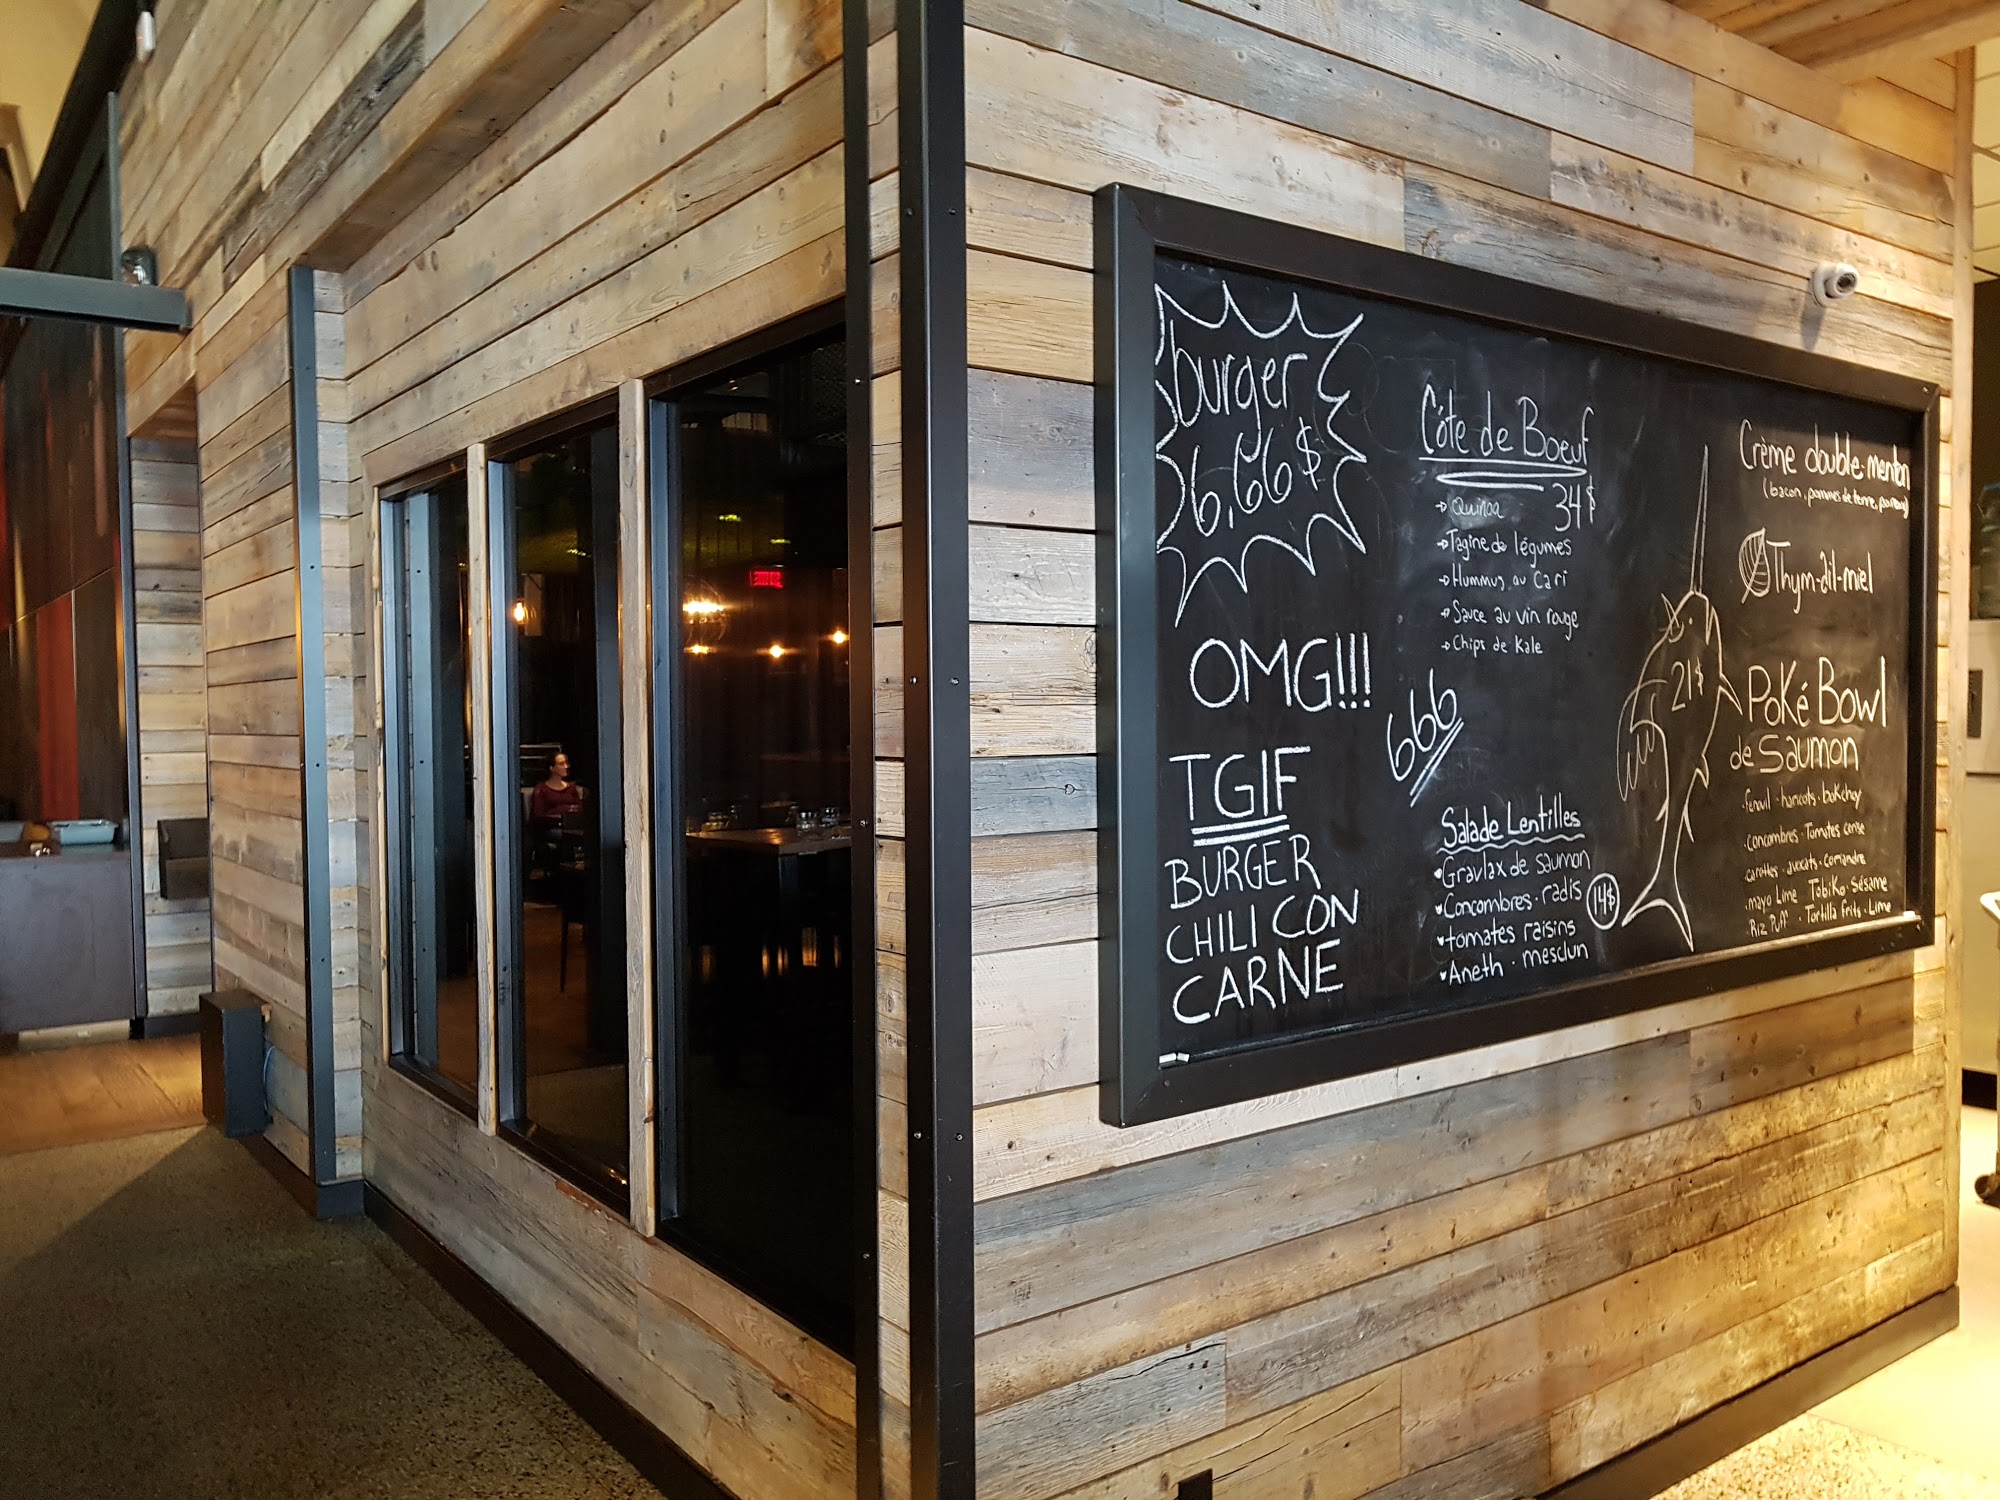 burger
6,66$
OMG!!!
TGIF
BURGER
CHILI CON
CARNE
Côte de Boeuf
34$
→ Quinoa
→ Tagine de légumes
→ Hummus au Cari
→ Sauce au vin rouge
→ Chips de Kale
666
Salade Lentilles
Gravlax de saumon
Concombres · radis
tomates raisins
Aneth · mesclun
14$
21$
Crème double-menton
(bacon, pommes de terre, poireaux)
Thym-dil-miel
Poké Bowl
de Saumon
· fenouil · haricots · bokchoy
· concombres · Tomates cerise
· carottes · avocats · coriandre
· mayo Lime · Tobiko · Sésame
· Riz Puff · Tortilla frits · Lime